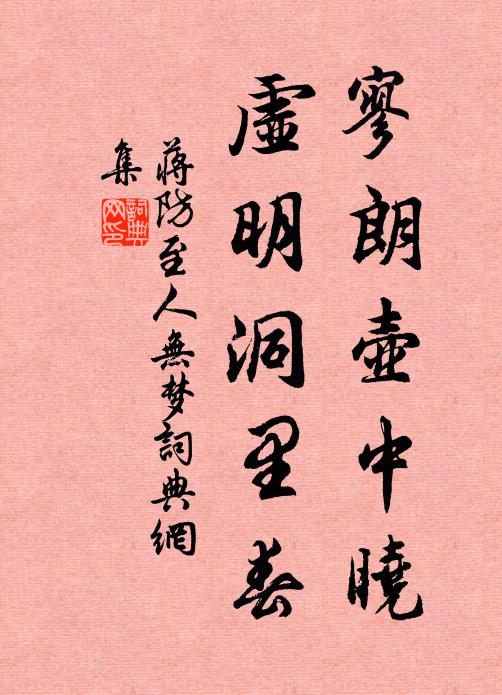 寥朗壺中曉
虛明洞里春
蔣防至人無夢詞典網
集
詞典
网印